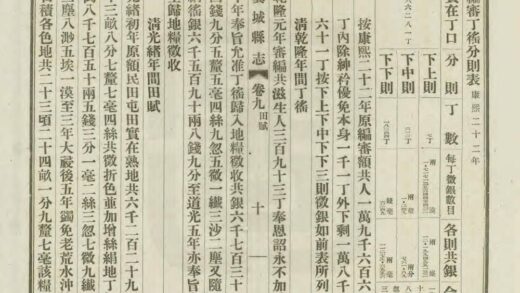 編審丁徭分則表 康熙二十二年
表在丁口 分則 丁數 每丁徵銀數目 各則共銀
下上則
下中則
下下則
按康熙二十二年原編審額共人一萬九千六百六
丁內除紳衿優免本身一千一丁外下剩一萬八千
六十一丁按下上下中下下三則徵銀如前表所列
清乾隆年間丁徭
乾隆元年審編共滋生人三百九十三丁奉恩詔永不加
城縣志 卷九 田賦 十
年奉旨允准丁徭歸入地糧徵收共銀六千七百三十
錢九分五釐五毫四絲九忽五微一纖三沙二塵又隨
徭銀六千五百九十兩八錢九分至道光五年亦奉旨
隨地糧徵收
清光緒年間田賦
緒初年原額民田屯田實在熟地共六千二百二十九
三畝八分七釐七毫四絲共徵折色並加增絲絹地丁
千八百七十五兩五錢三分一毫二絲三忽七微九纖
塵八渺五埃一漠至三年大祲後五年蠲免老荒水沖
積各色地共二十三頃二十四畝一分九釐七毫該糧